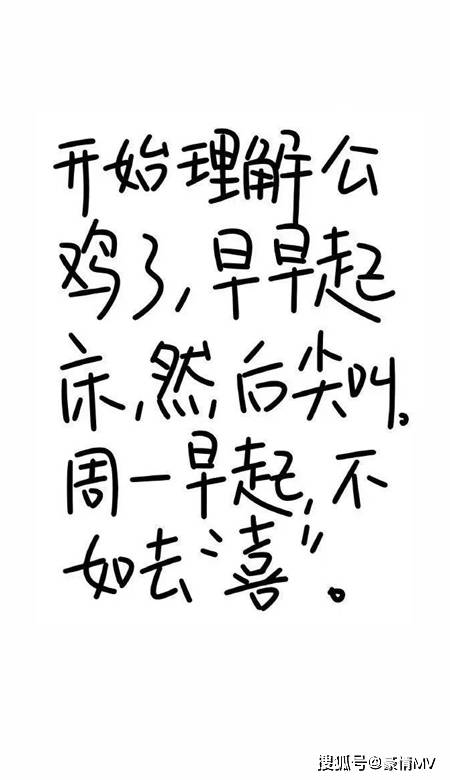 开始理解公
鸡了,早早起
床,然后尖叫。
周一早起,不
如去“喜”。
搜狐号@豪情MV